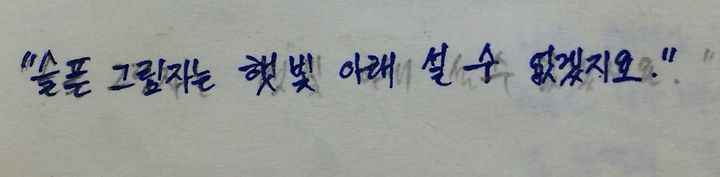 "슬픈 그림자는 햇빛 아래 설 수 없겠지요."